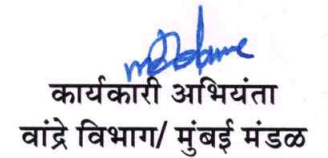 कार्यकारी अभियंता
वांद्रे विभाग/ मुंबई मंडळ